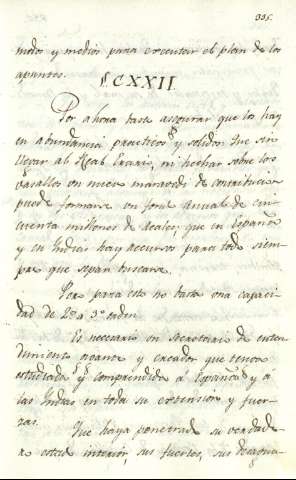 335.
modos y medios para executar el plan de los
apuntes.
§CXXII
Por ahora basta assegurar que los hay
en abundancia practicos y solidos: Que sin
llegar al Real Erario, ni hechar sobre los
vasallos un nuevo maravedi de contribucion
puede formarse un fondo anual de cin-
cuenta millones de reales; que en España
y en Indias hay recursos para todo siem-
pre que sepan buscarse.
Pero para esto no basta una capaci-
dad de 2º a 3º orden.
Es necesario un secretario de enten-
dimiento gigante y creador que tenga
estudiada y comprendida a España y a
las Indias en toda su extension y fuer-
zas.
Que haya penetrado su verdade-
ro estado interior, sus fuertes, sus